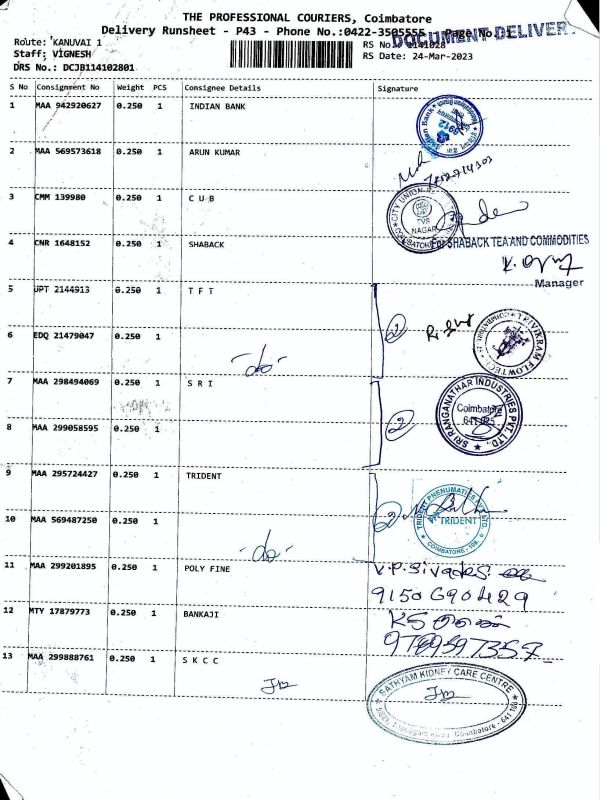 THE PROFESSIONAL COURIERS, Coimbatore
Delivery Runsheet - P43 - Phone No.:0422-3505555 Page No.
DOCUMENT DELIVER
Route: KANUVAI 1
RS No. 1141028
Staff: VIGNESH
RS Date: 24-Mar-2023
DRS No.: DCJB114102801
S No Consignment No Weight PCS Consignee Details Signature
1 MAA 942920627 0.250 1 INDIAN BANK
2 MAA 569573618 0.250 1 ARUN KUMAR
3 CMM 139980 0.250 1 C U B
CITY UNION
TVS NAGAR
COIMBATORE
4 CNR 1648152 0.250 1 SHABACK
For SHABACK TEA AND COMMODITIES
Manager
5 JPT 2144913 0.250 1 T F T
2
TRIVIKRAM FLOWTECH
6 EDQ 21479047 0.250 1
-do-
7 MAA 298494069 0.250 1 S R I
2
SRI RANGANATHAR INDUSTRIES PVT. LTD.
Coimbatore
8 MAA 299058595 0.250 1
9 MAA 295724427 0.250 1 TRIDENT
2
TRIDENT PNEUMATICS PVT LTD
TRIDENT
COIMBATORE
10 MAA 569487250 0.250 1
-do-
11 MAA 299201895 0.250 1 POLY FINE
V.P.Sivades
9150690429
12 MTY 17879773 0.250 1 BANKAJI
KS
13 MAA 299888761 0.250 1 S K C C
SATHYAM KIDNEY CARE CENTRE
Coimbatore - 641